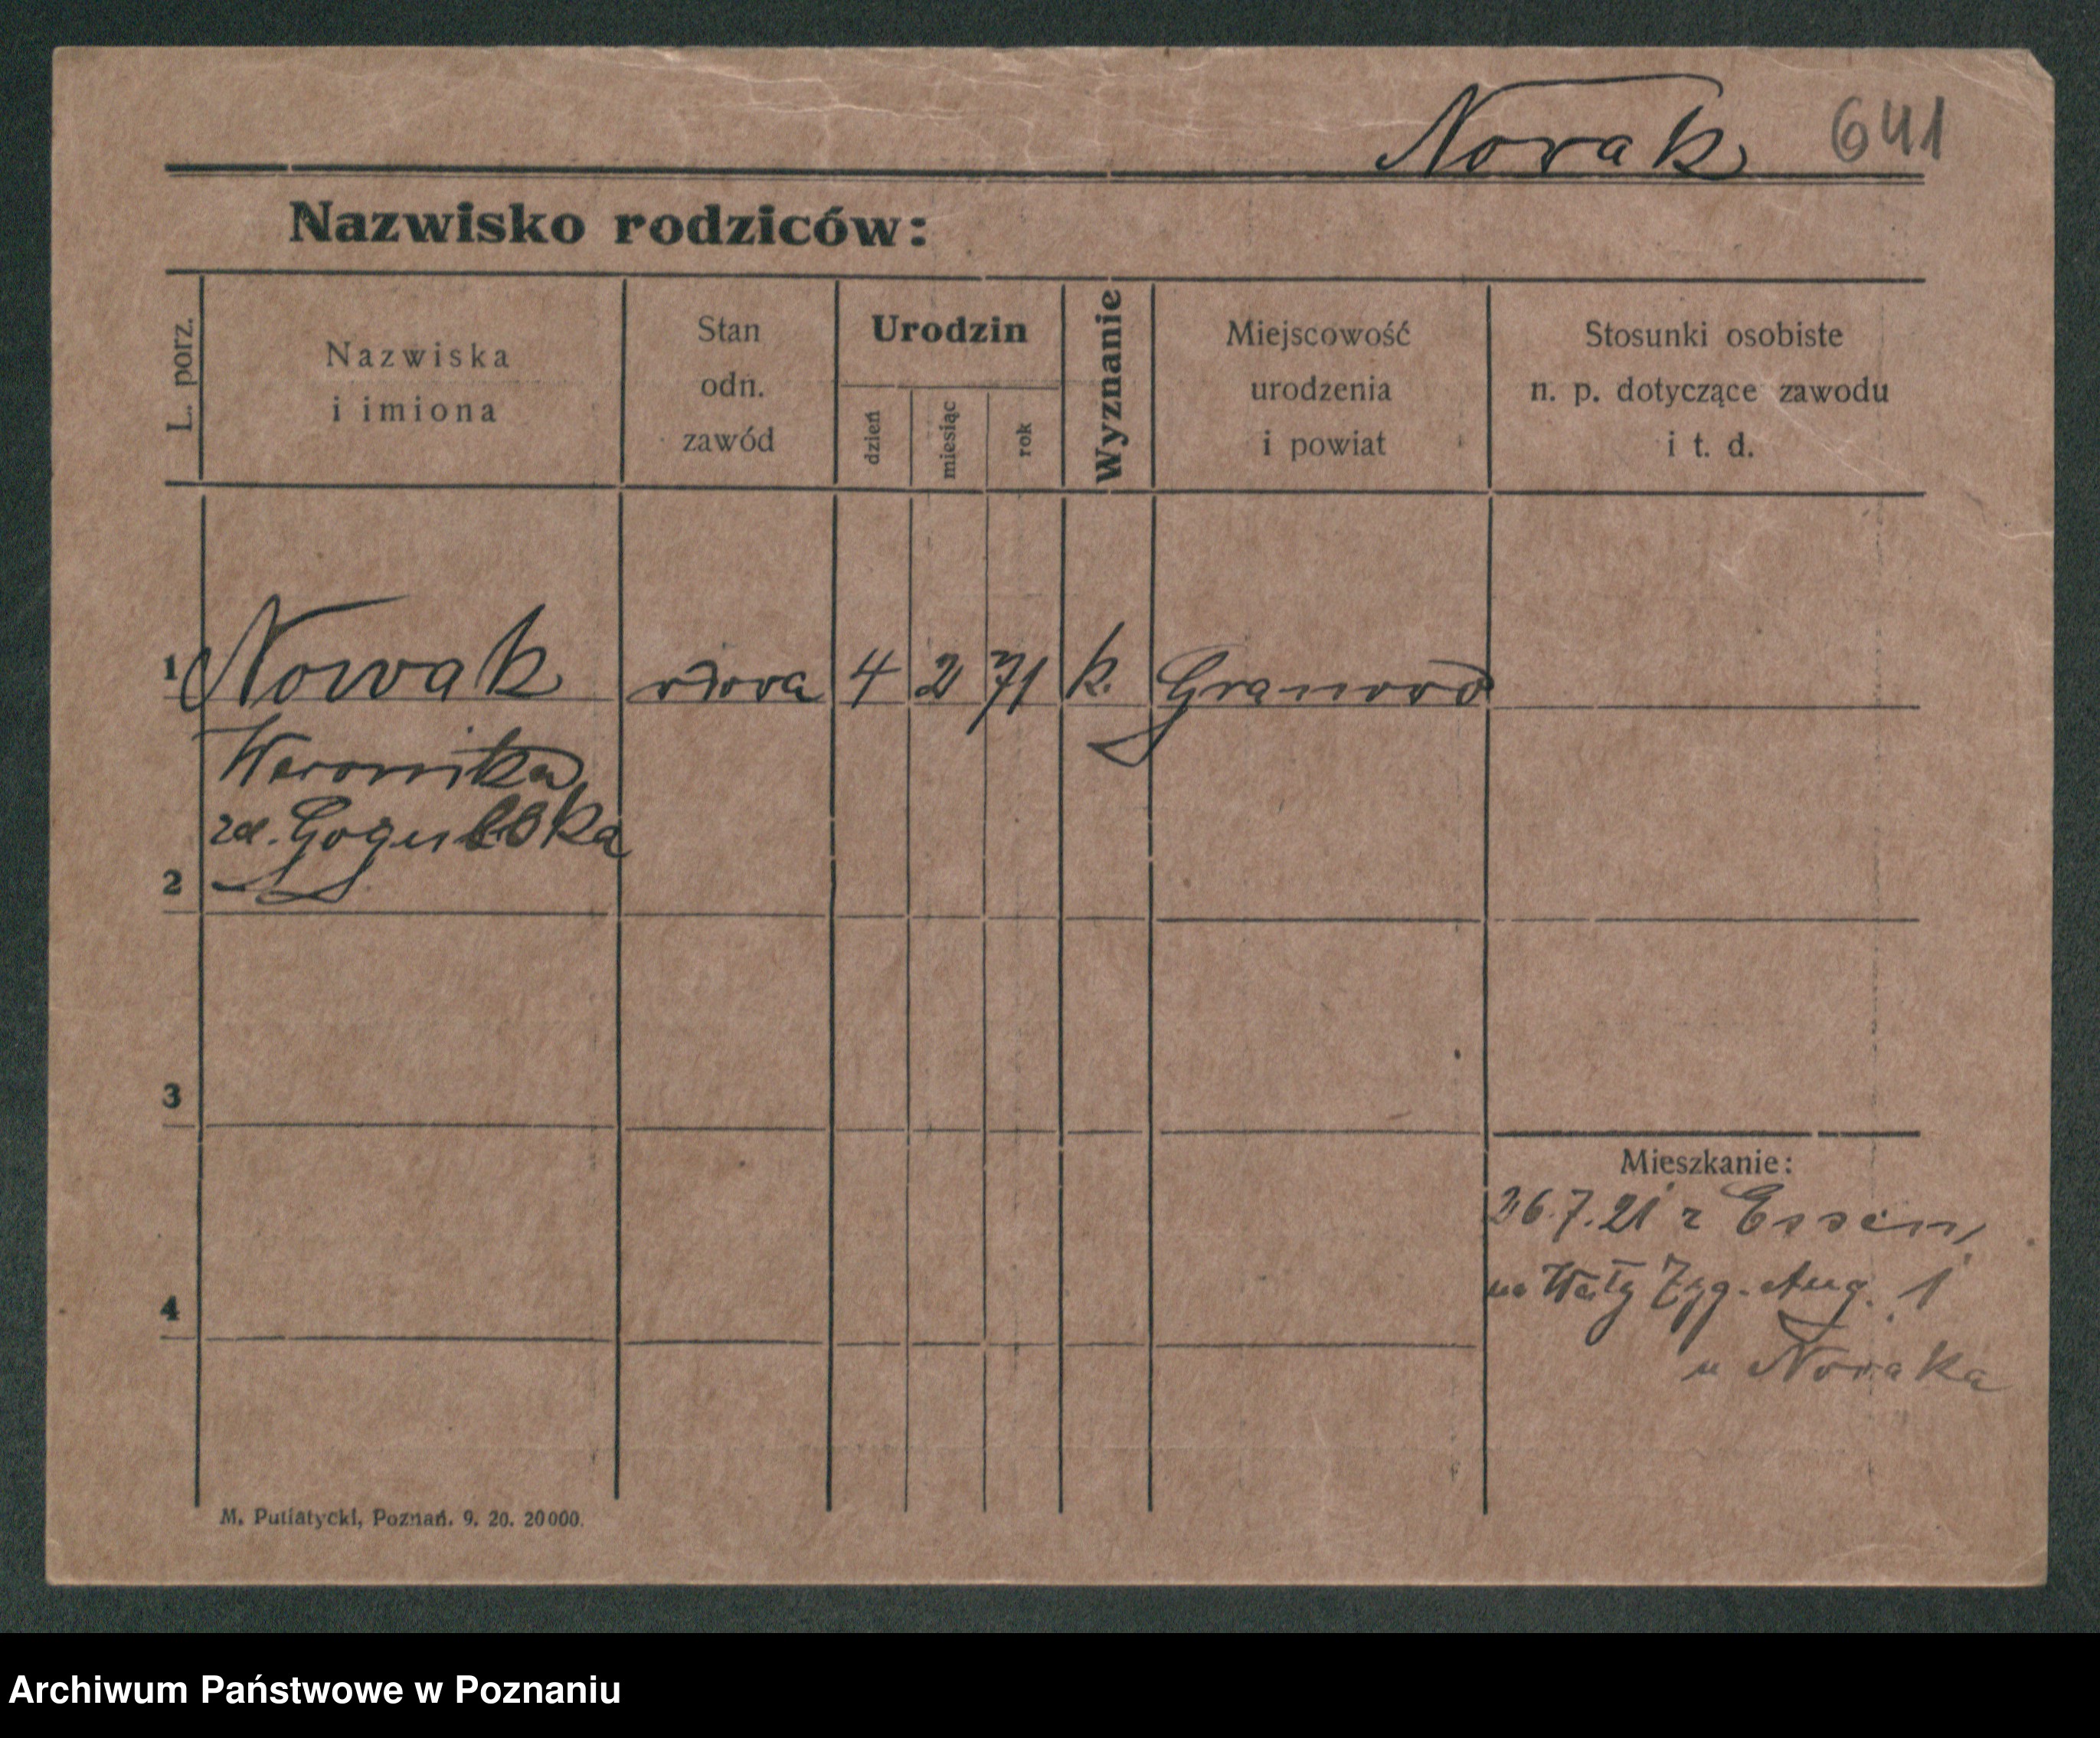 Nowak 641
Nazwisko rodziców:
L. porz.
Nazwiska
i imiona
Stan
odn.
zawód
Urodzin
dzień
miesiąc
rok
Wyznanie
Miejscowość
urodzenia
i powiat
Stosunki osobiste
n. p. dotyczące zawodu
i t. d.
1 Nowak wdowa 4 2 71 k. Granowo
Weronika
zd.
2
3
Mieszkanie:
26.7.21 z Essen,
na Wały Zyg. Aug. 1
4
u Nowaka
M. Putiatycki, Poznań. 9. 20. 20000.
Archiwum Państwowe w Poznaniu